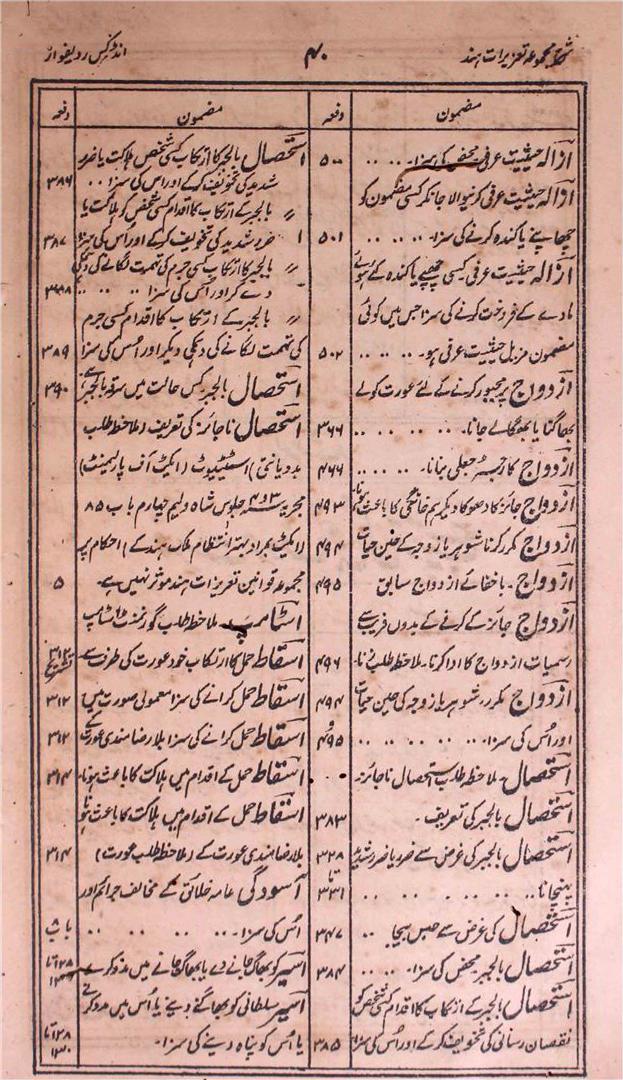 شرح مجموعہ تعزیرات ہند
۴۰
انڈکس ردیفوار
مضمون دفعہ
ازالہ حیثیت عرفی محض کی سزا۔ .. .. ۵۰۰
ازالہ حیثیت عرفی کرنیوالا جانکر کسی مضمون کو
چھاپنے یا کندہ کرنے کی سزا۔ .. .. .. ۵۰۱
ازالہ حیثیت عرفی کسی چھپے یا کندہ کئے ہوئے
مادے کے فروخت کرنے کی سزا جس میں کوئی
مضمون مزیل حیثیت عرفی ہو۔ .. .. .. ۵۰۲
ازدواج پر مجبور کرنے کے لئے عورت کو لے
بھاگنا یا بھگا لے جانا۔ .. .. .. .. ۳۶۶
ازدواج کا رجسٹر جعلی بنانا۔ .. .. .. ۴۶۶
ازدواج جائز کا دھوکا دیکر ہم خانگی کا باعث ہونا۔ ۴۹۳
ازدواج مکرر کرنا شوہر یا زوجہ کے حین حیات ۴۹۴
ازدواج۔ باخفائے ازدواج سابق ۴۹۵
ازدواج جائز کے کرنے کے بدوں فریب سے
رسمیات ازدواج کا ادا کرنا۔ ملاحظہ طلب زنا۔ ۴۹۶
ازدواج مکرر شوہر یا زوجہ کی حین حیات ۴۹۴
اور اُس کی سزا۔ .. .. .. .. .. و ۴۹۵
استحصال۔ ملاحظہ طلب استحصال ناجائز۔
استحصال بالجبر کی تعریف۔ ۳۸۳
استحصال بالجبر کی غرض سے ضرر یا ضرر شدید ۳۲۸
پہنچانا۔ .. .. .. .. .. .. تا ۳۳۱
استحصال کی غرض سے حبس بیجا .. ۳۴۷
استحصال بالجبر محض کی سزا۔ .. .. ۳۸۴
استحصال بالجبر کے ارتکاب کا اقدام کسی شخص کو
نقصان رسانی کی تخویف کر کے اور اُس کی سزا ۳۸۵
مضمون دفعہ
استحصال بالجبر کا ارتکاب کسی شخص ہلاکت یا ضرر
شدید کی تخویف کر کے اور اس کی سزا .. ۳۸۶
〃 بالجبر کے ارتکاب کا اقدام کسی شخص کو ہلاکت یا
ضرر شدید کی تخویف کر کے اور اُس کی سزا ۳۸۷
〃 بالجبر کا ارتکاب کسی جرم کی تہمت لگانے کی دھمکی
دے کر اور اس کی سزا .. .. ..
〃 بالجبر کے ارتکاب کا اقدام کسی جرم
کی تہمت لگانے کی دھمکی دیکر اور اُس کی سزا ۳۸۹
استحصال بالجبر کس حالت میں سرقہ بالجبر ہے ۳۹۰
استحصال ناجائز کی تعریف (ملاحظہ طلب
بددیانتی) اسٹیٹیوٹ (ایکٹ آف پارلیمنٹ)
مجریہ ۳ و ۴ جلوس شاہ ولیم چہارم باب ۸۵
(ایکٹ بمراد بہتر انتظام ملک ہند کے) احکام پر
مجموعہ قوانین تعزیرات ہند موثر نہیں ہے۔ ۵
اسٹامپ۔ ملاحظہ طلب گورنمنٹ اسٹامپ
اسقاط حمل کا ارتکاب خود عورت کی طرف سے ۳۱۲ تشریح
اسقاط حمل کرانے کی سزا معمولی صورت میں ۳۱۲
اسقاط حمل کرانے کی سزا بلا رضامندی عورت کے ۳۱۳
اسقاط حمل کے اقدام میں ہلاکت کا باعث ہونا۔ ۳۱۴
اسقاط حمل کے اقدام میں ہلاکت کا باعث ہونا
بلا رضامندی عورت کے (ملاحظہ طلب عورت) ۳۱۴
آسودگی عامہ خلائق کے مخالف جرائم اور
اُس کی سزا۔ .. .. .. .. باب
اسیر کو بھاگ جانے دے یا بھاگ جانے میں مدد کرے ۱۲۸ تا ۱۳۰
اسیر سلطانی کو بھاگنے دینے یا اُس میں مدد کرنے
یا اُس کو پناہ دینے کی سزا۔ ۱۲۸ تا ۱۳۰